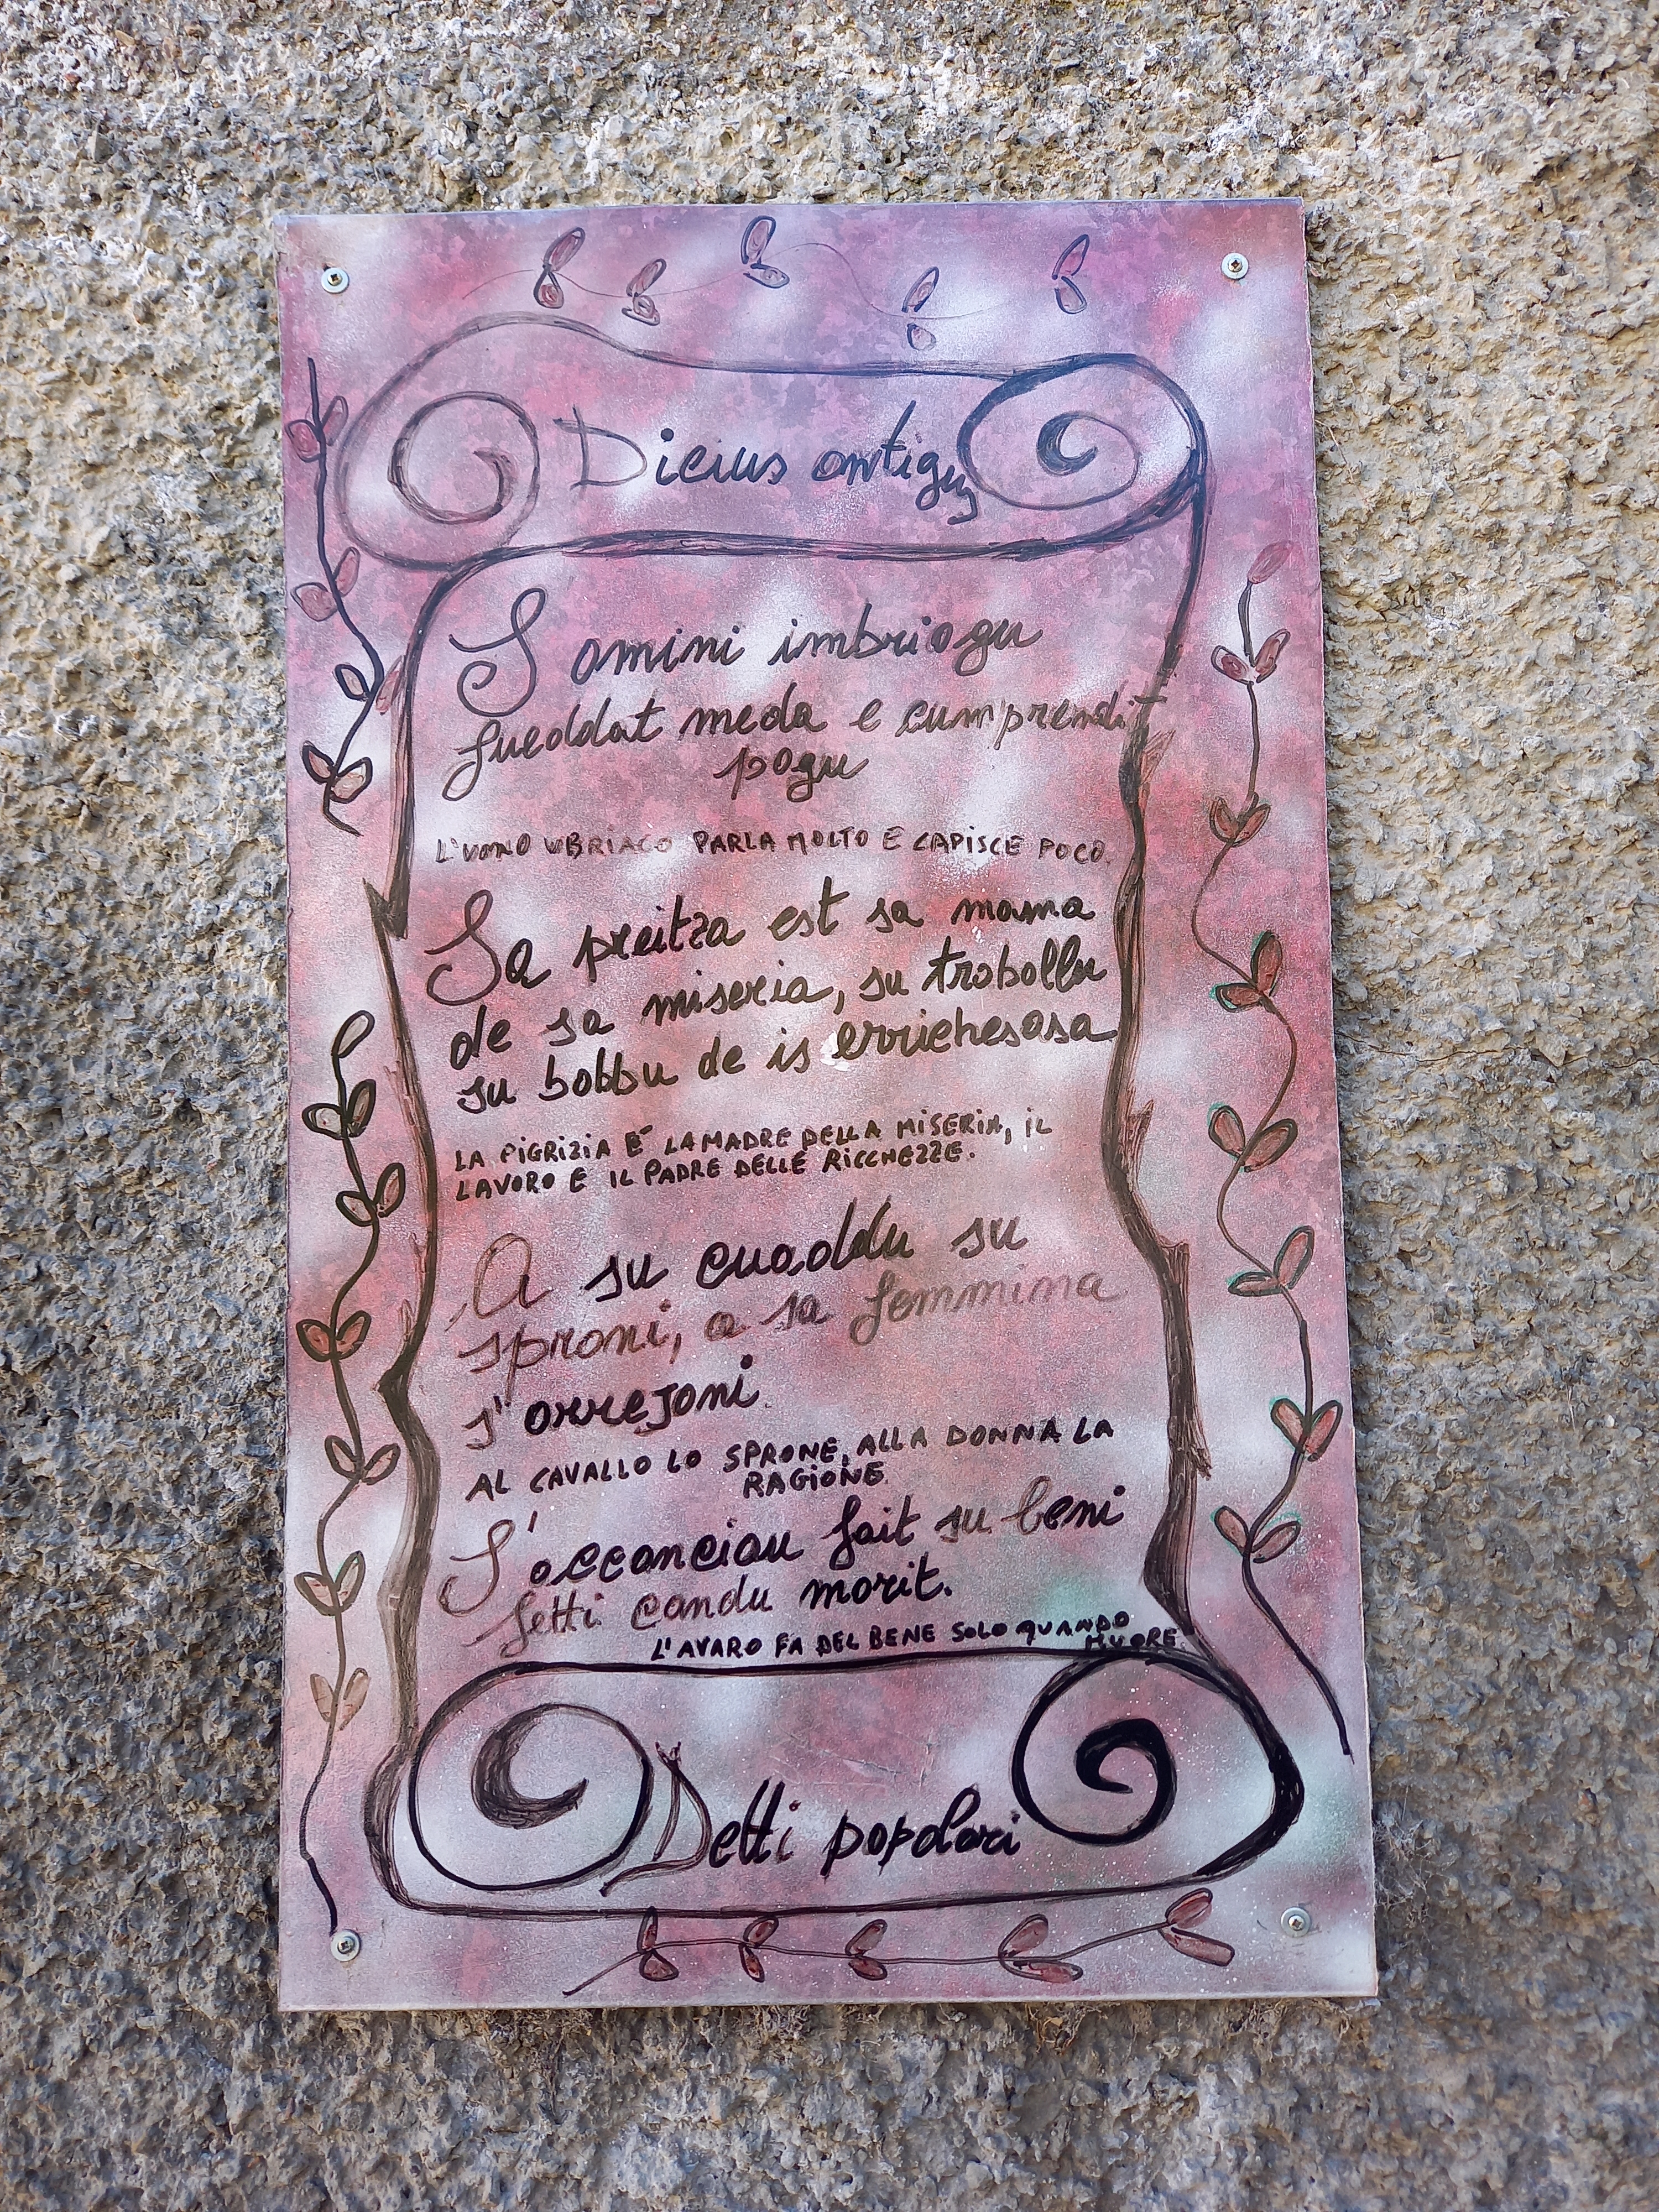 Dicius antigus
S omini imbriagu
fueddat meda e cumprendit
pagu
L'UOMO UBRIACO PARLA MOLTO E CAPISCE POCO.
Sa preitza est sa mama
de sa miseria, su traballu
su babbu de is errichesasa
LA PIGRIZIA E' LA MADRE DELLA MISERIA, IL
LAVORO E IL PADRE DELLE RICCHEZZE.
A su cuaddu su
sproni, a sa femmina
s'arrejoni
AL CAVALLO LO SPRONE, ALLA DONNA LA
RAGIONE
S'accanciau fait su beni
fetti candu morit.
L'AVARO FA DEL BENE SOLO QUANDO
MUORE
Detti popolari